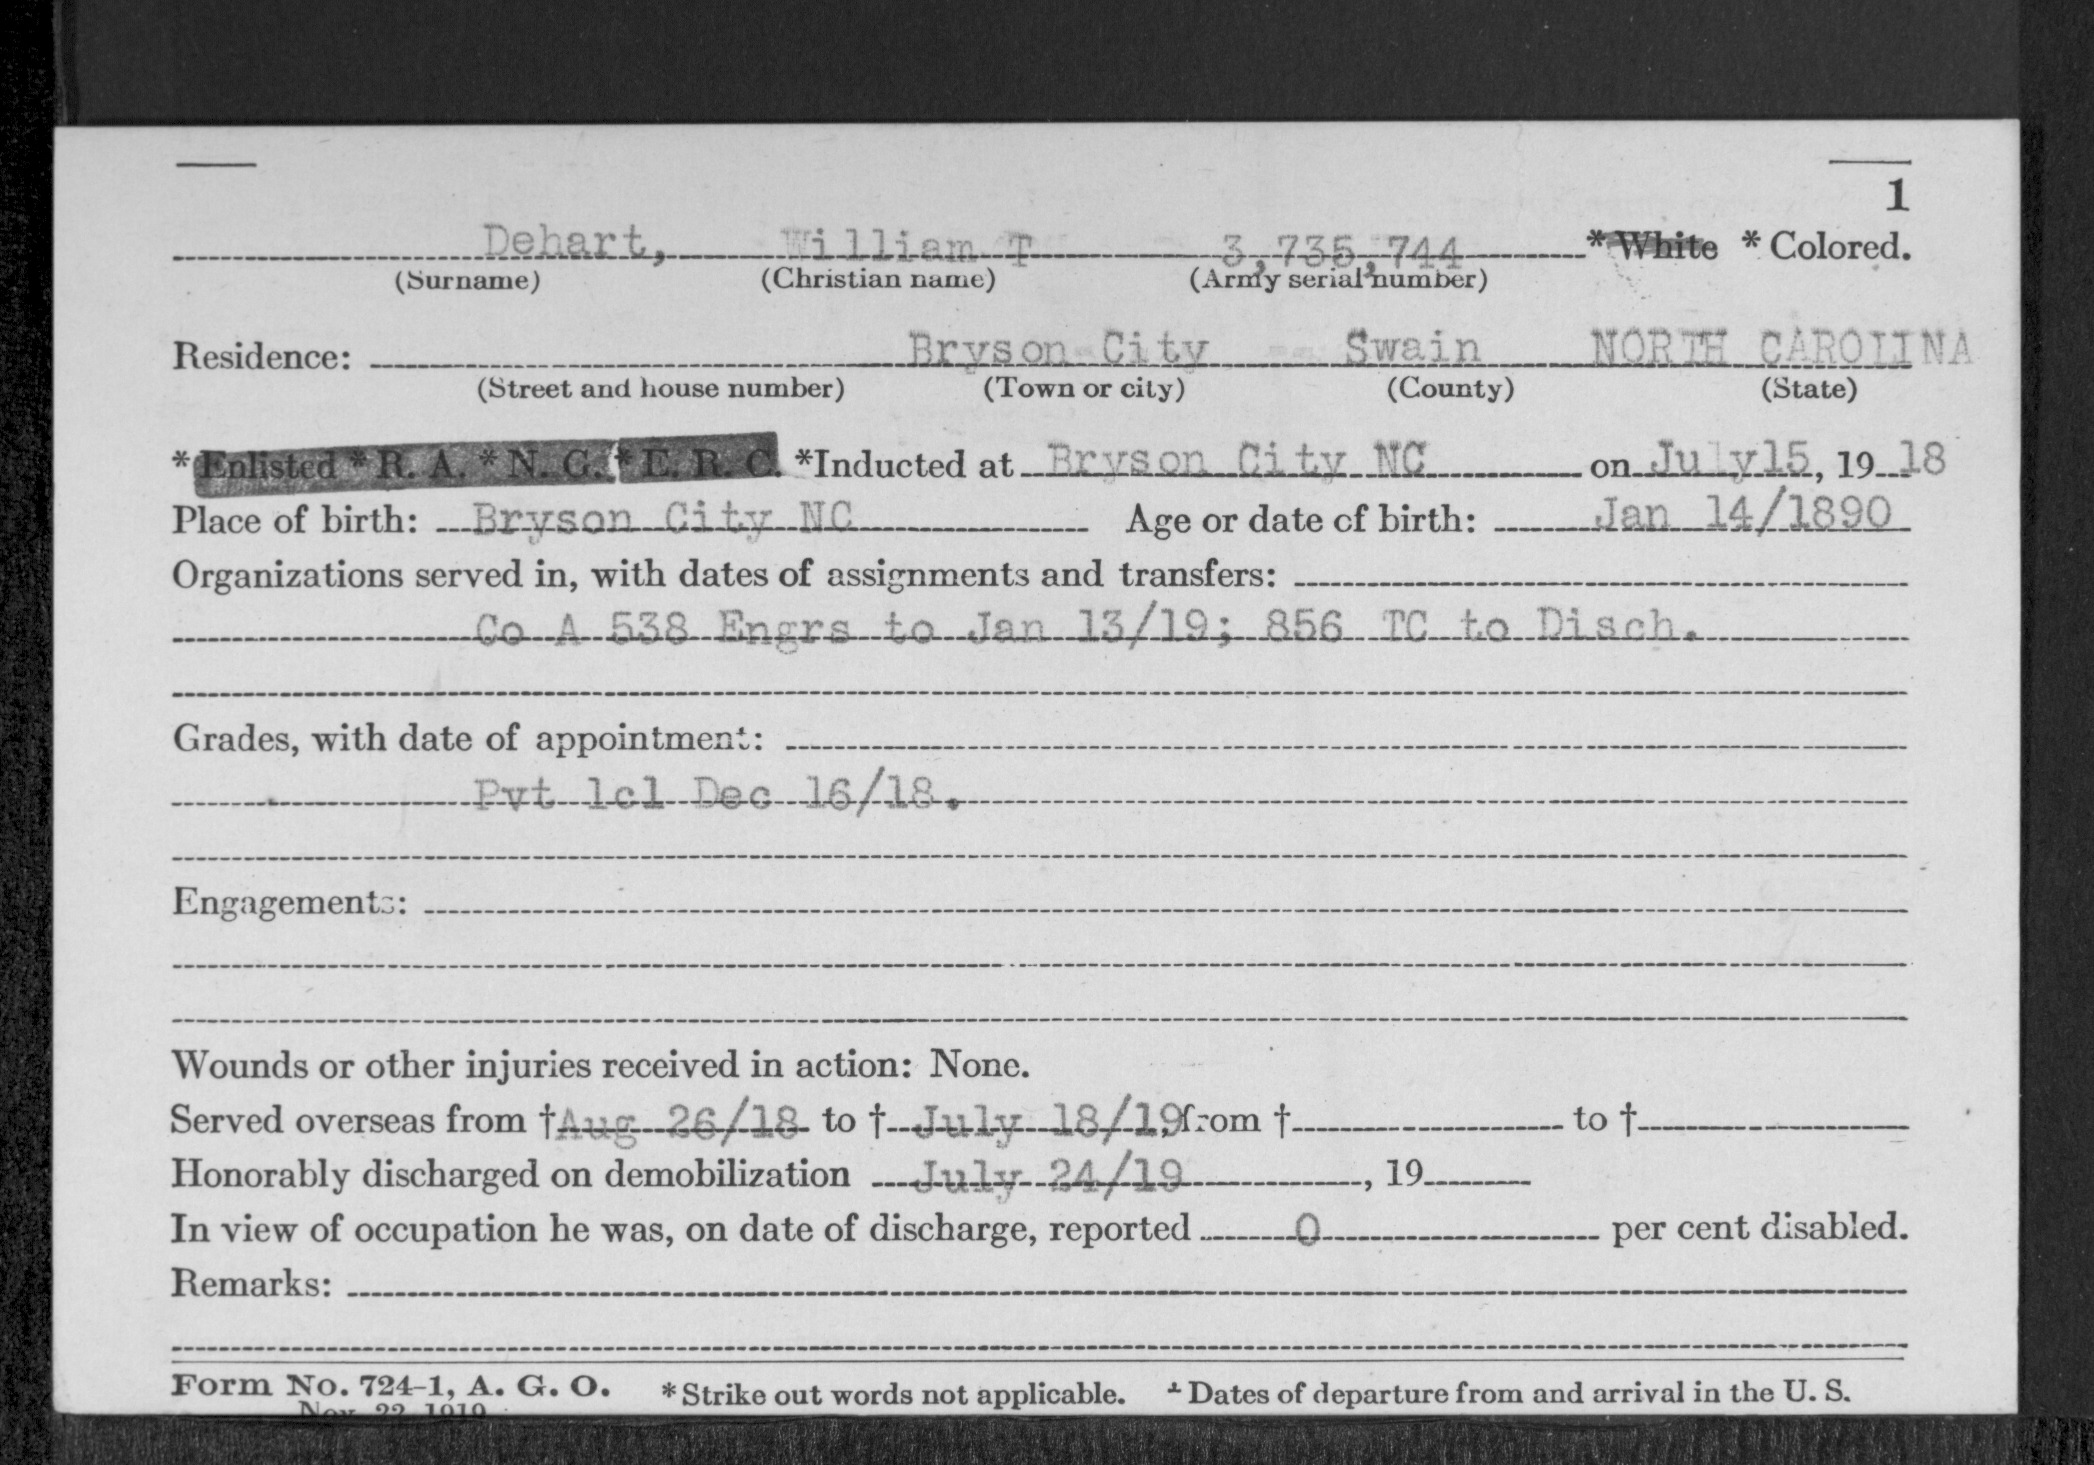 1
Dehart, William T 3,735,744 *White *Colored.
(Surname) (Christian name) (Army serial number)
Residence: Bryson City Swain NORTH CAROLINA
(Street and house number) (Town or city) (County) (State)
*Enlisted *R. A. *N. G. *E. R. C. *Inducted at Bryson City NC on July 15, 19 18
Place of birth: Bryson City NC Age or date of birth: Jan 14/1890
Organizations served in, with dates of assignments and transfers:
Co A 538 Engrs to Jan 13/19; 856 TC to Disch.
Grades, with date of appointment:
Pvt 1cl Dec 16/18.
Engagements:
Wounds or other injuries received in action: None.
Served overseas from †Aug 26/18 to † July 18/19, from † to †
Honorably discharged on demobilization July 24/19, 19
In view of occupation he was, on date of discharge, reported 0 per cent disabled.
Remarks:
Form No. 724-1, A. G. O. *Strike out words not applicable. †Dates of departure from and arrival in the U. S.
Nov. 22, 1919